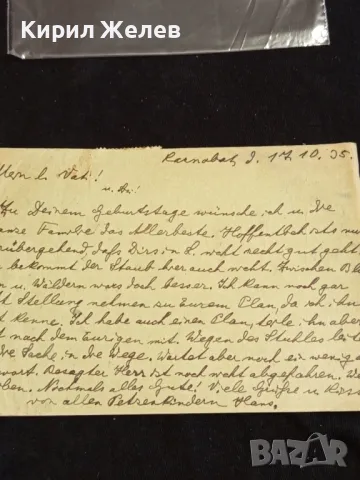 Кирил Желев
Karnobat, d. 17.10.35.
l. Vati!
u. du!
Zu Deinem Geburtstage wünsche ich u. die
Familie das Allerbeste. Hoffentlich ists nur
vorübergehend, daß Dirs in L. nicht recht gut geht,
bekommt der Staub hier auch nicht. Zwischen
u. Wäldern wars doch besser. Ich kann noch gar
Stellung nehmen zu Eurem Plan, da ich ihn
kenne. Ich habe auch einen Plan, teile ihn aber
nach dem Eurigen mit. Wegen des Stuhles
Sache in die Wege. Wartet aber noch ein wenig
Besagter Herr ist noch nicht abgefahren.
Nochmals alles Gute! Viele Grüße u.
von allen Petrenkindern Hans.
BAZAR